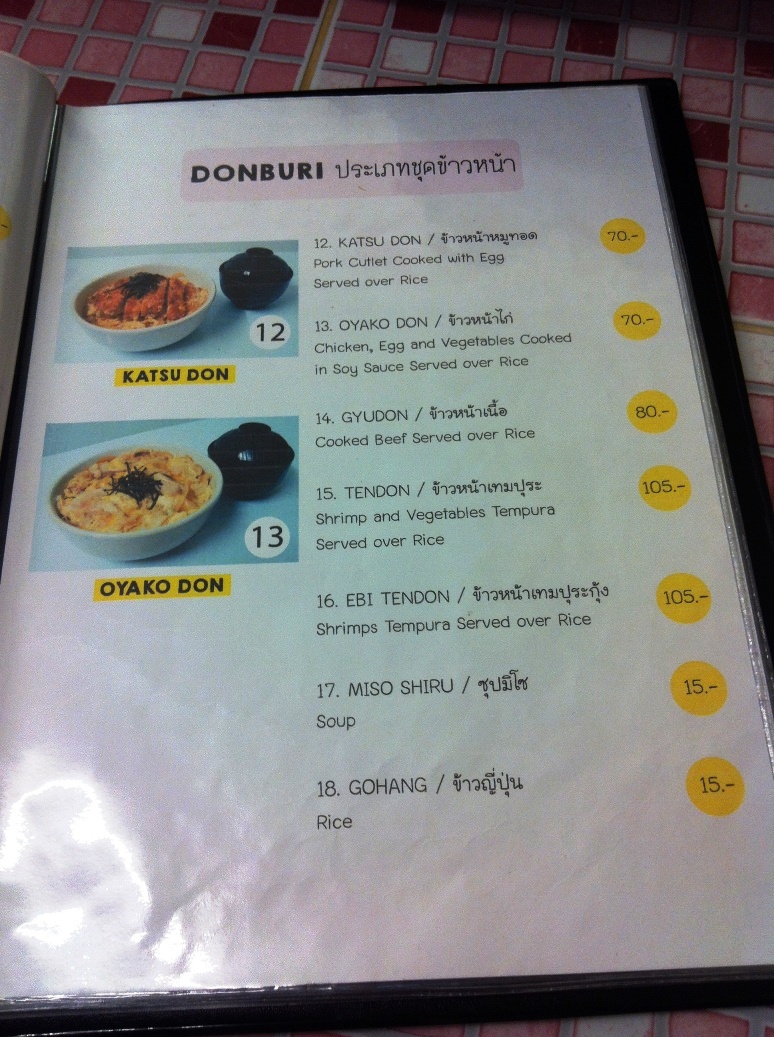 DONBURI ประเภทชุดข้าวหน้า
12. KATSU DON / ข้าวหน้าหมูทอด 70.-
Pork Cutlet Cooked with Egg
Served over Rice
13. OYAKO DON / ข้าวหน้าไก่ 70.-
Chicken, Egg and Vegetables Cooked
in Soy Sauce Served over Rice
14. GYUDON / ข้าวหน้าเนื้อ 80.-
Cooked Beef Served over Rice
15. TENDON / ข้าวหน้าเทมปุระ 105.-
Shrimp and Vegetables Tempura
Served over Rice
16. EBI TENDON / ข้าวหน้าเทมปุระกุ้ง 105.-
Shrimps Tempura Served over Rice
17. MISO SHIRU / ซุปมิโซ 15.-
Soup
18. GOHANG / ข้าวญี่ปุ่น 15.-
Rice
12
KATSU DON
13
OYAKO DON